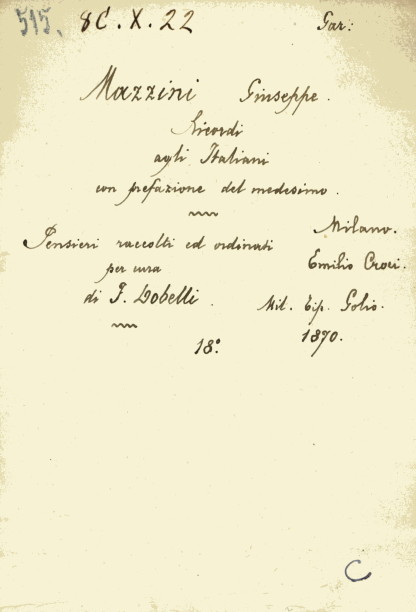 515. 8C.X.22 Gar:
Mazzini Giuseppe.
Ricordi
agli Italiani
con prefazione del medesimo.
Pensieri raccolti ed ordinati
per cura
di F. Dobelli.
Milano.
Emilio Croci.
Mil. Tip. Golio.
1870.
18°.
C